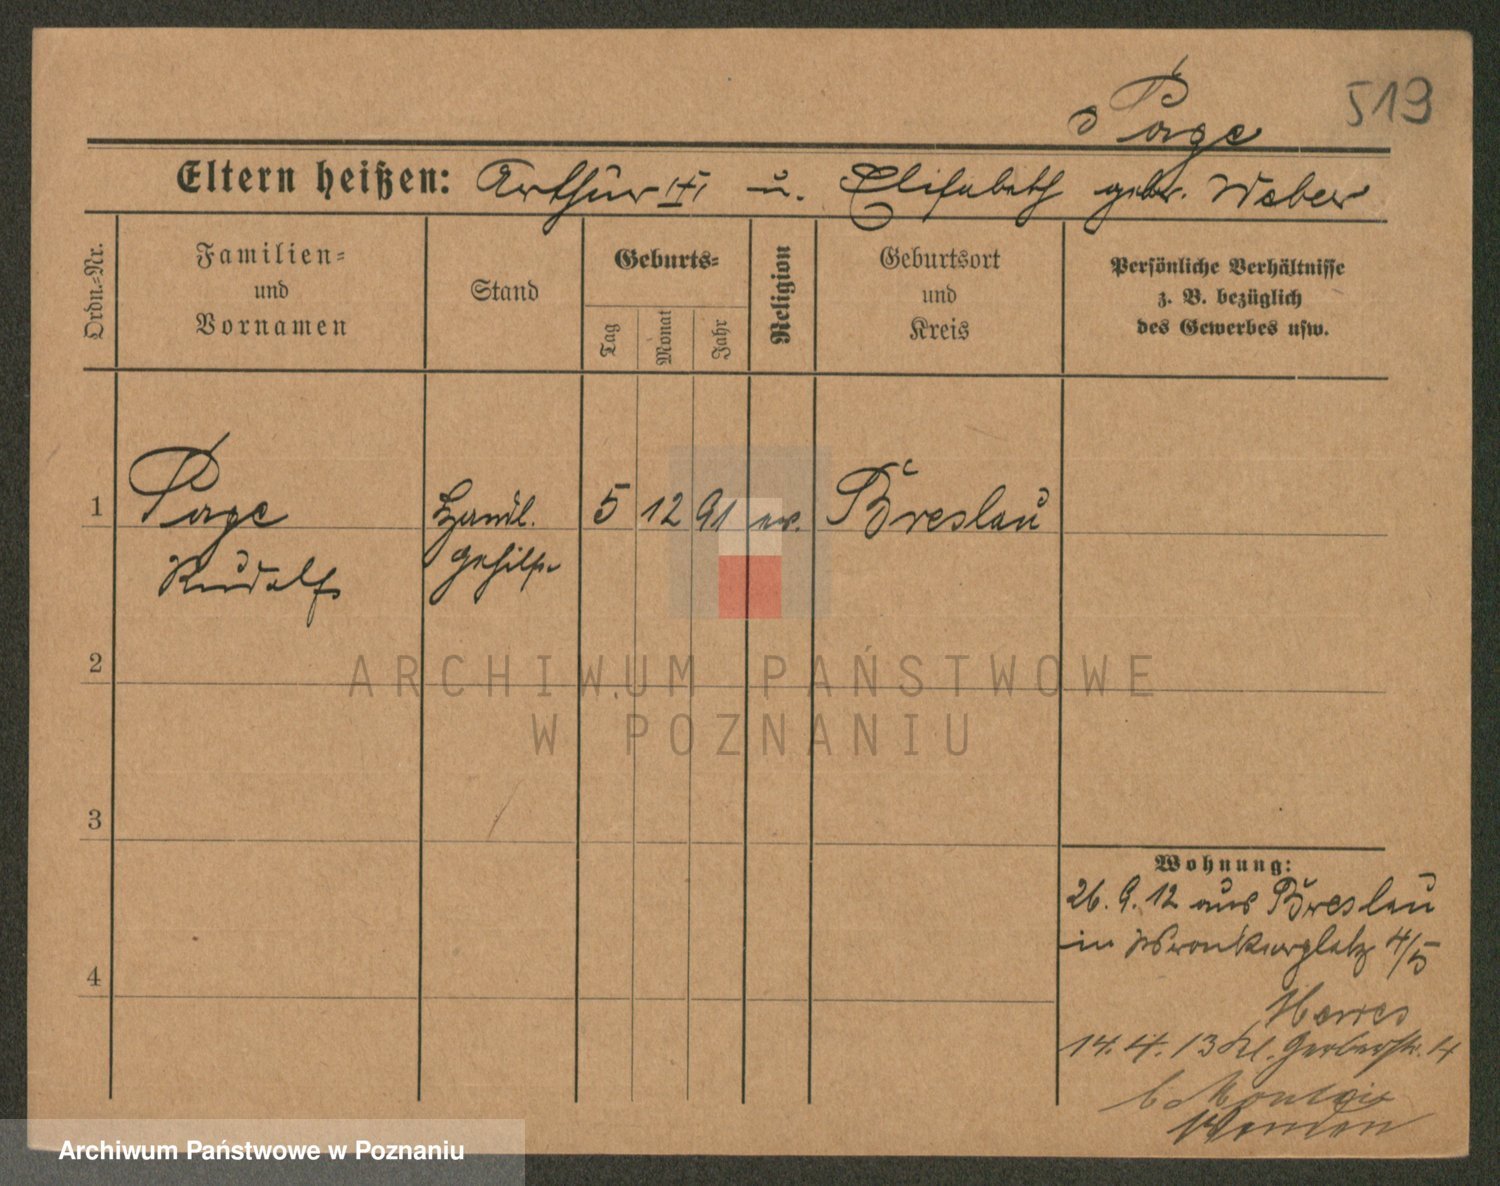 519
Page
Eltern heißen: Arthur u. Elisabeth gebr. Weber
Ordn.-Nr.
Familien-
und
Vornamen
Stand
Geburts-
Tag
Monat
Jahr
Religion
Geburtsort
und
Kreis
Persönliche Verhältnisse
z. B. bezüglich
des Gewerbes usw.
1
Page
Rudolf
Handl.
Gehilfe
5 12 91 ev. Breslau
2
ARCHIWUM PAŃSTWOWE
W POZNANIU
3
Wohnung:
26. 9. 12 aus Breslau
in Wronkerplatz 4/5
4
14. 4. 13 Kl. Gerberstr. 4
b.
Archiwum Państwowe w Poznaniu